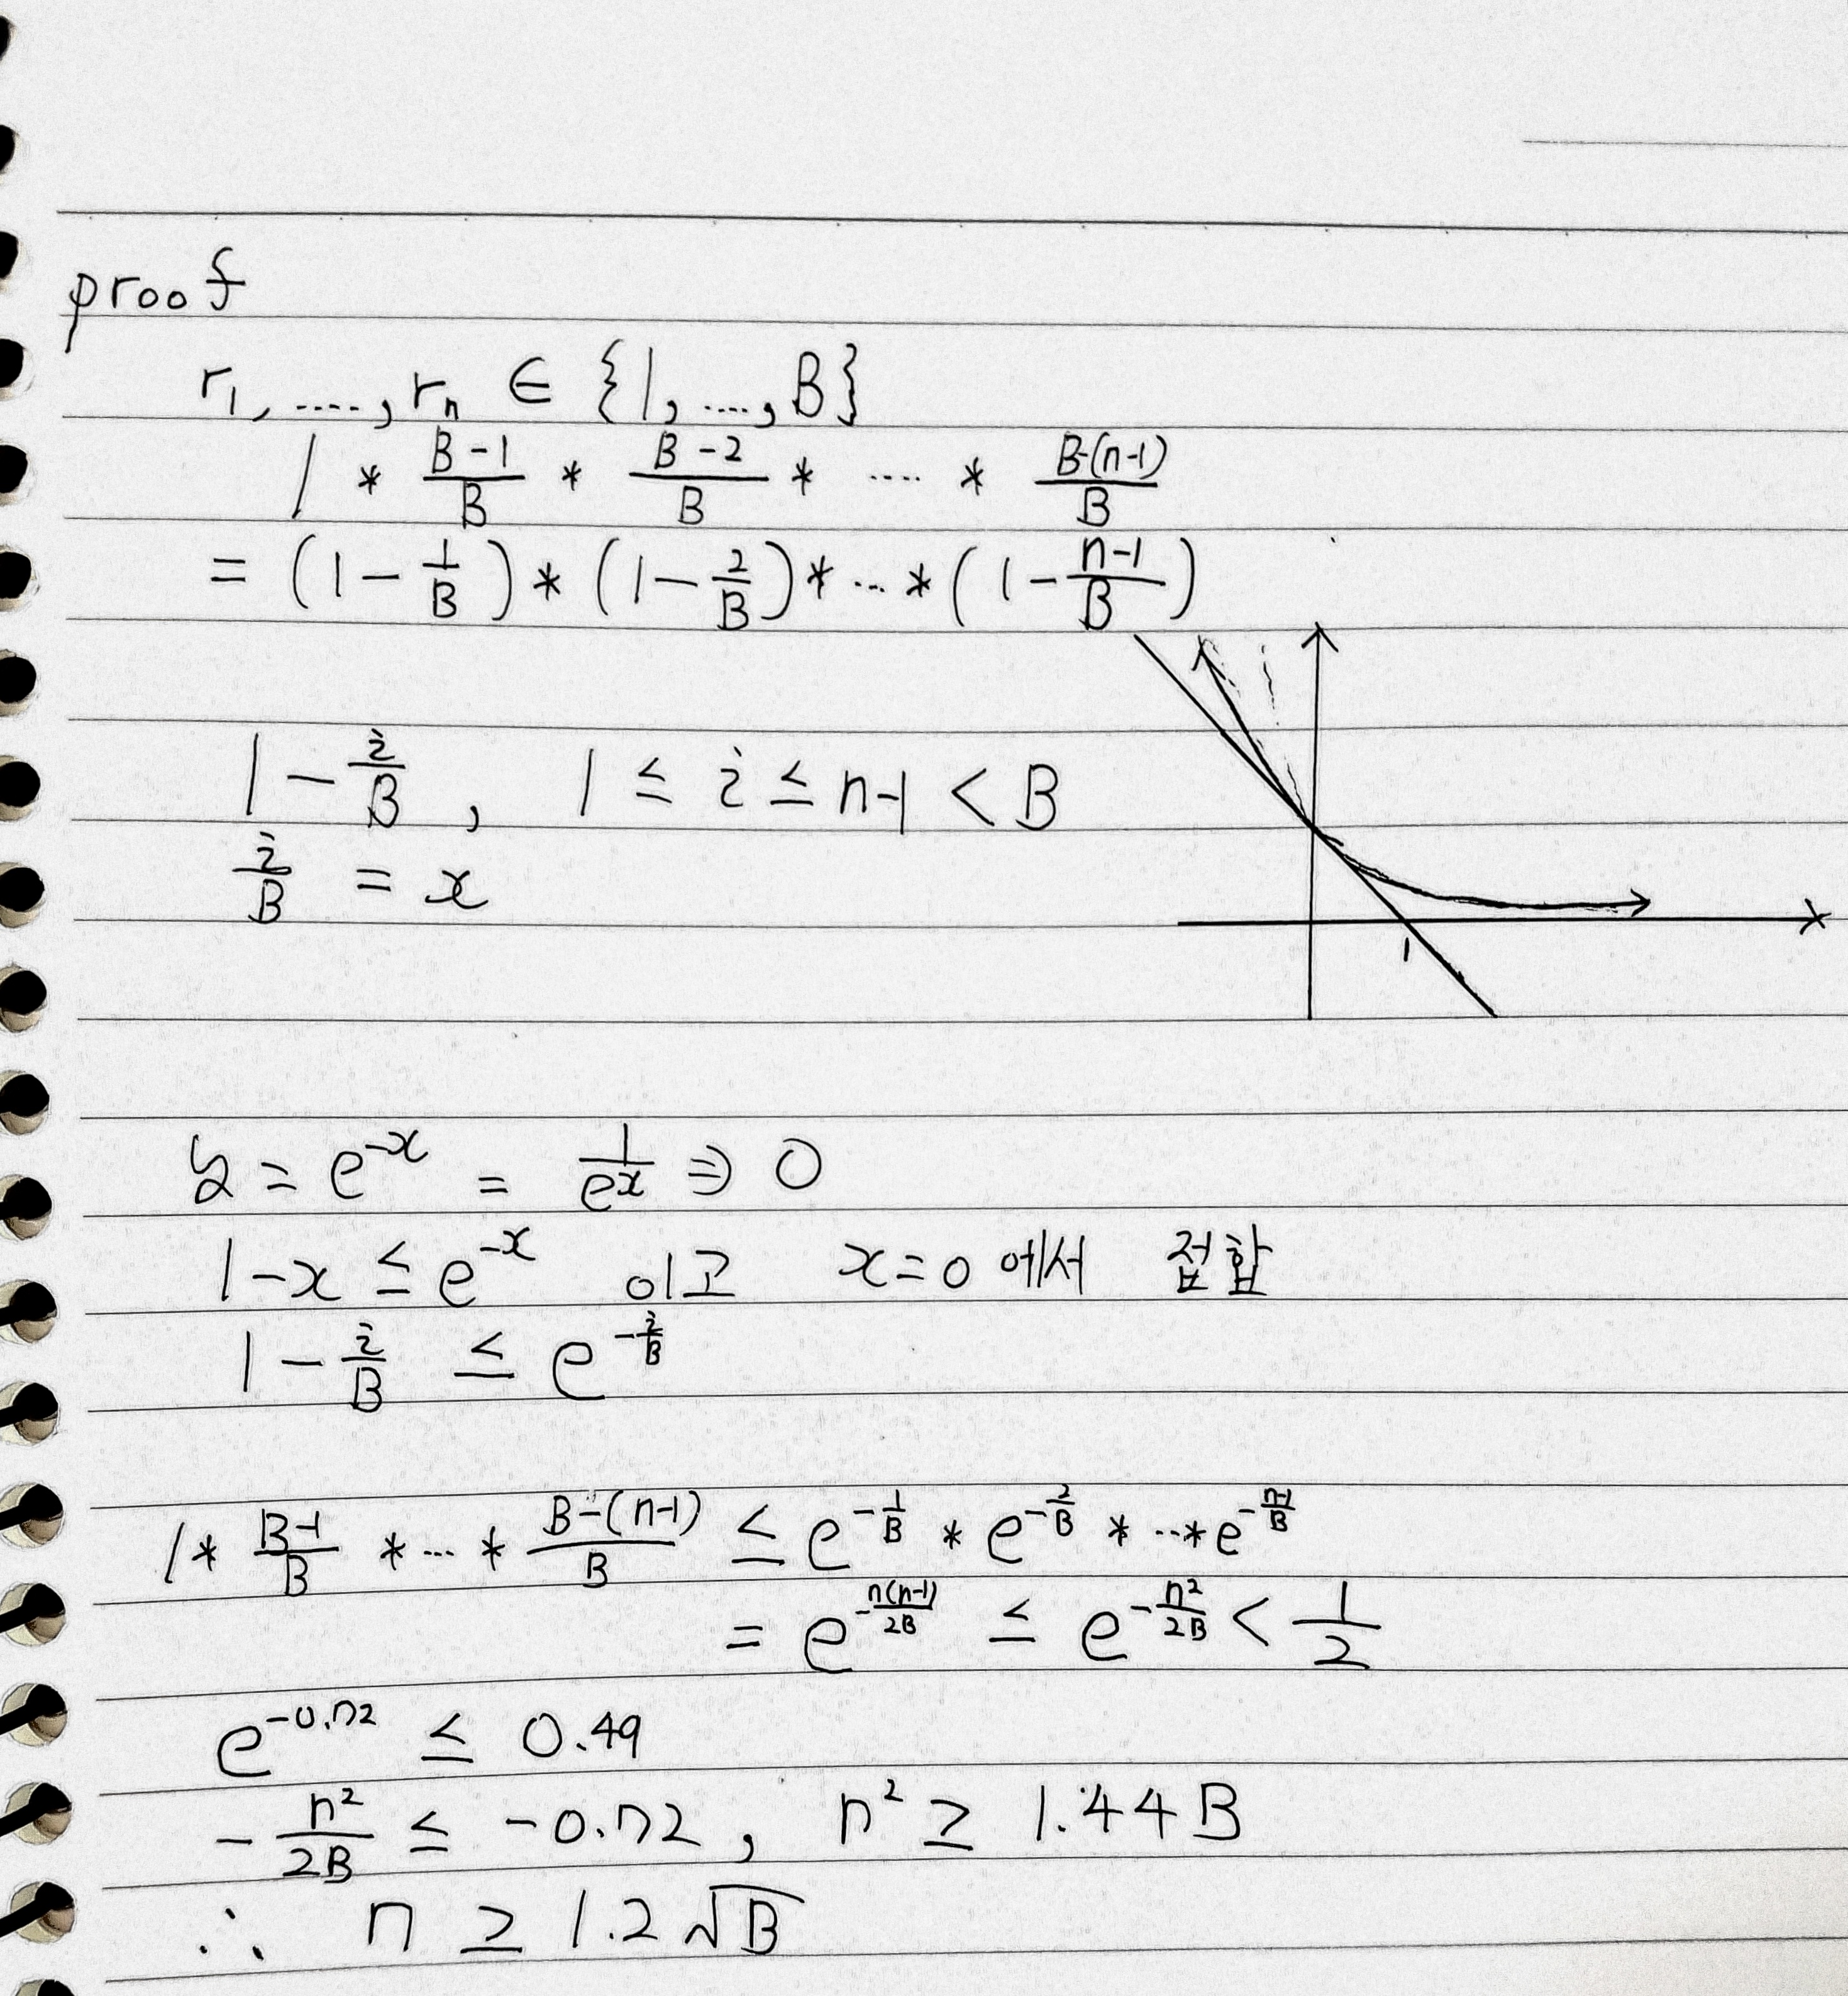 proof
r₁, ...., rₙ ∈ {1, ...., B}
1 * (B-1)/B * (B-2)/B * .... * (B-(n-1))/B
= (1 - 1/B) * (1 - 2/B) * ... * (1 - (n-1)/B)
1 - i/B , 1 ≤ i ≤ n-1 < B
i/B = x
1
y = e^(-x) = 1/e^x ⇒ 0
1-x ≤ e^(-x) 이고 x=0 에서 접합
1 - i/B ≤ e^(-i/B)
1 * (B-1)/B * ... * (B-(n-1))/B ≤ e^(-1/B) * e^(-2/B) * ... * e^(-(n-1)/B)
= e^(-n(n-1)/2B) ≤ e^(-n²/2B) < 1/2
e^(-0.72) ≤ 0.49
-n²/2B ≤ -0.72 , n² ≥ 1.44B
∴ n ≥ 1.2√B